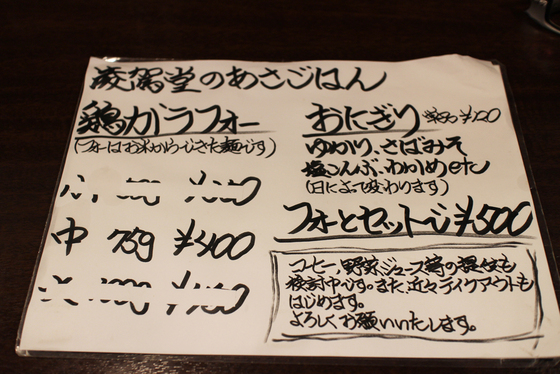 凌駕堂のあさごはん
鶏ガラフォー
(フォーはお米からできた麺です)
中 75g ¥400
おにぎり ¥120
ゆかり、さばみそ
塩こんぶ、わかめetc
(日によって変わります)
フォーとセットで¥500
コーヒー、野菜ジュース等の提供も
検討中です。また、近々テイクアウトも
はじめます。
よろしくお願いいたします。